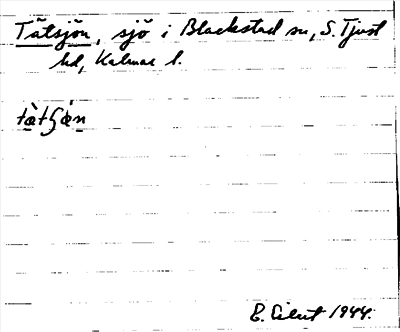 Tätsjön, sjö i Blackstad sn, S. Tjust
hd, Kalmar l.
E. 1944.